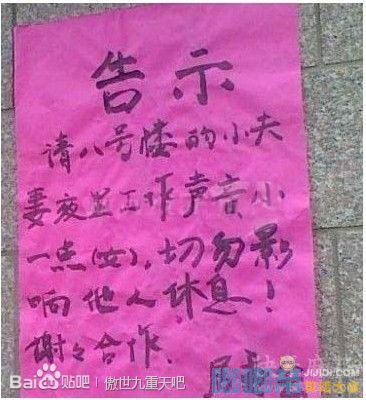 告示
请八号楼的小夫
妻夜里工作声音小
一点(女),切勿影
响他人休息!
谢々合作.
Bai du 贴吧 | 傲世九重天吧
JIJIDI.COM